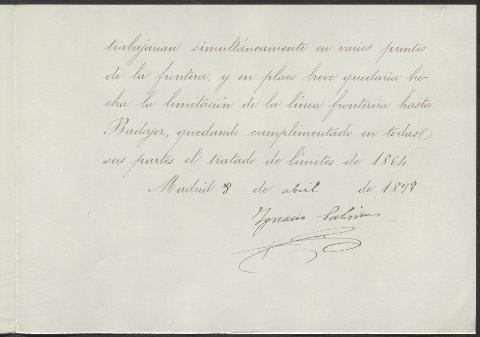 trabajarian simultáneamente en varios puntos
de la frontera, y en plazo breve quedaria he-
cha la limitación de la línea fronteriza hasta
Badajoz, quedando cumplimentado en todas
sus partes el tratado de límites de 1864
Madrid 8 de abril de 1899
Ignacio